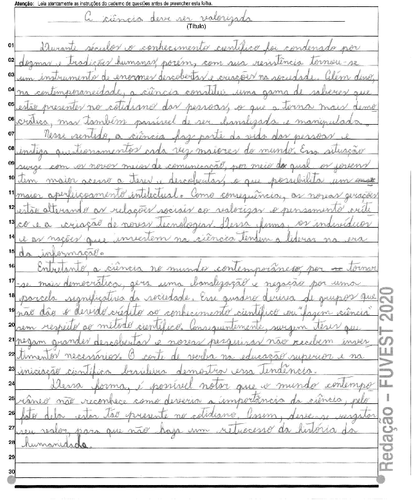 Atenção: Leia atentamente as instruções do caderno de questões antes de preencher esta folha.
A ciência deve ser valorizada
(Título)
01 Durante séculos o conhecimento científico foi condenado por
02 dogmas e tradições humanas, porém, com sua resistência tornou-se
03 um instrumento de enormes descobertas e criações na sociedade. Além disso,
04 na contemporaneidade, a ciência constitui uma gama de saberes que
05 estão presentes no cotidiano das pessoas, o que a torna mais demo
06 crática, mas também passível de ser banalizada e manipulada.
07 Nesse sentido, a ciência faz parte da vida das pessoas e
08 instiga questionamentos cada vez maiores do mundo. Essa situação
09 surge com os novos meios de comunicação, por meio do qual os jovens
10 tem maior acesso a teses e descobertas, o que possibilita um
11 maior aperfeiçoamento intelectual. Como consequência, as novas gerações
12 estão alterando as relações sociais ao valorizar o pensamento críti
13 co e a criação de novas tecnologias. Dessa forma, os indivíduos
14 e as nações que investem na ciência tendem a liderar na era
15 da informação.
16 Entretanto, a ciência no mundo contemporâneo, por tornar
17 se mais democrática, gera uma banalização e negação por uma
18 parcela significativa da sociedade. Esse quadro deriva de grupos que
19 não dão o devido crédito ao conhecimento científico ou fazem ciência
20 sem respeito ao método científico. Consequentemente, surgem teses que
21 negam grandes descobertas e novas pesquisas não recebem inves
22 timentos necessários. O corte de verba na educação superior e na
23 iniciação científica brasileira demostra essa tendência.
24 Dessa forma, é possível notar que o mundo contempo
25 râneo não reconhece como deveria a importância da ciência, pelo
26 fato dela estar tão presente no cotidiano. Assim, deve-se resgatar
27 seu valor, para que não haja um retrocesso da história da
28 humanidade.
29
30
Redação – FUVEST 2020